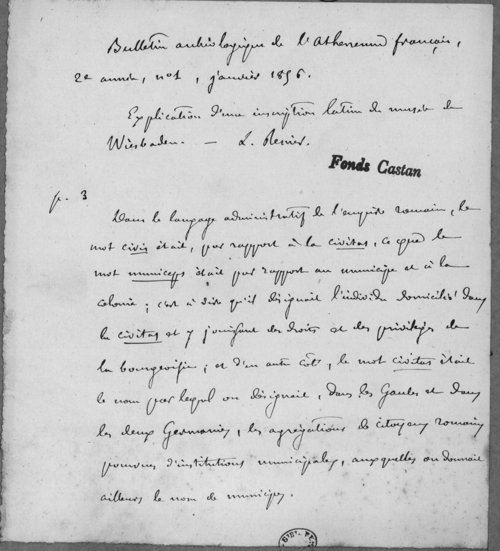 Bulletin archéologique de l'Athenaeum français,
2e année, no 1, janvier 1856.
Explication d'une inscription latine du musée de
Wiesbaden. — L. Renier.
Fonds Castan
p. 3
Dans le langage administratif de l'empire romain, le
mot civis était, par rapport à la civitas, ce que le
mot municeps était par rapport au municipe et à la
colonie ; c'est à dire qu'il désignait l'individu domicilié dans
la civitas et y jouissant des droits et des privilèges de
la bourgeoisie ; et d'un autre côté, le mot civitas était
le nom par lequel on désignait, dans les Gaules et dans
les deux Germanies, les agrégations de citoyens romains
pourvues d'institutions municipales, auxquelles on donnait
ailleurs le nom de municipes.